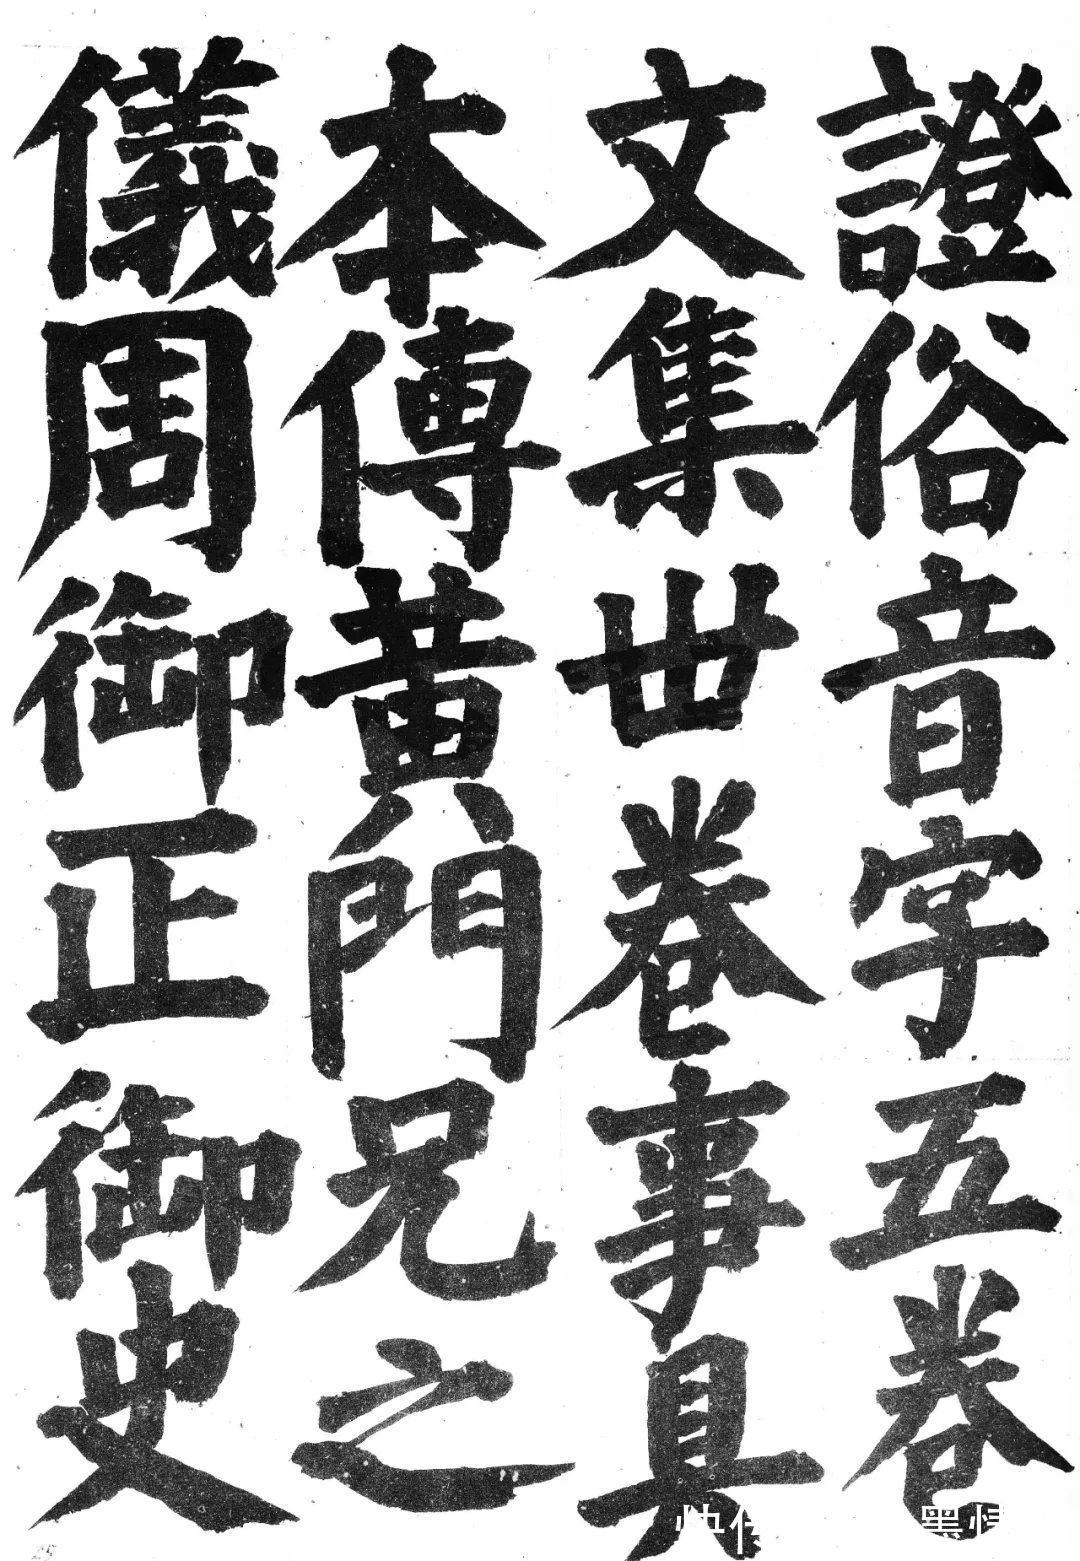 證俗音字五卷
文集丗卷事具
本傳黃門兄之
儀周御正御史